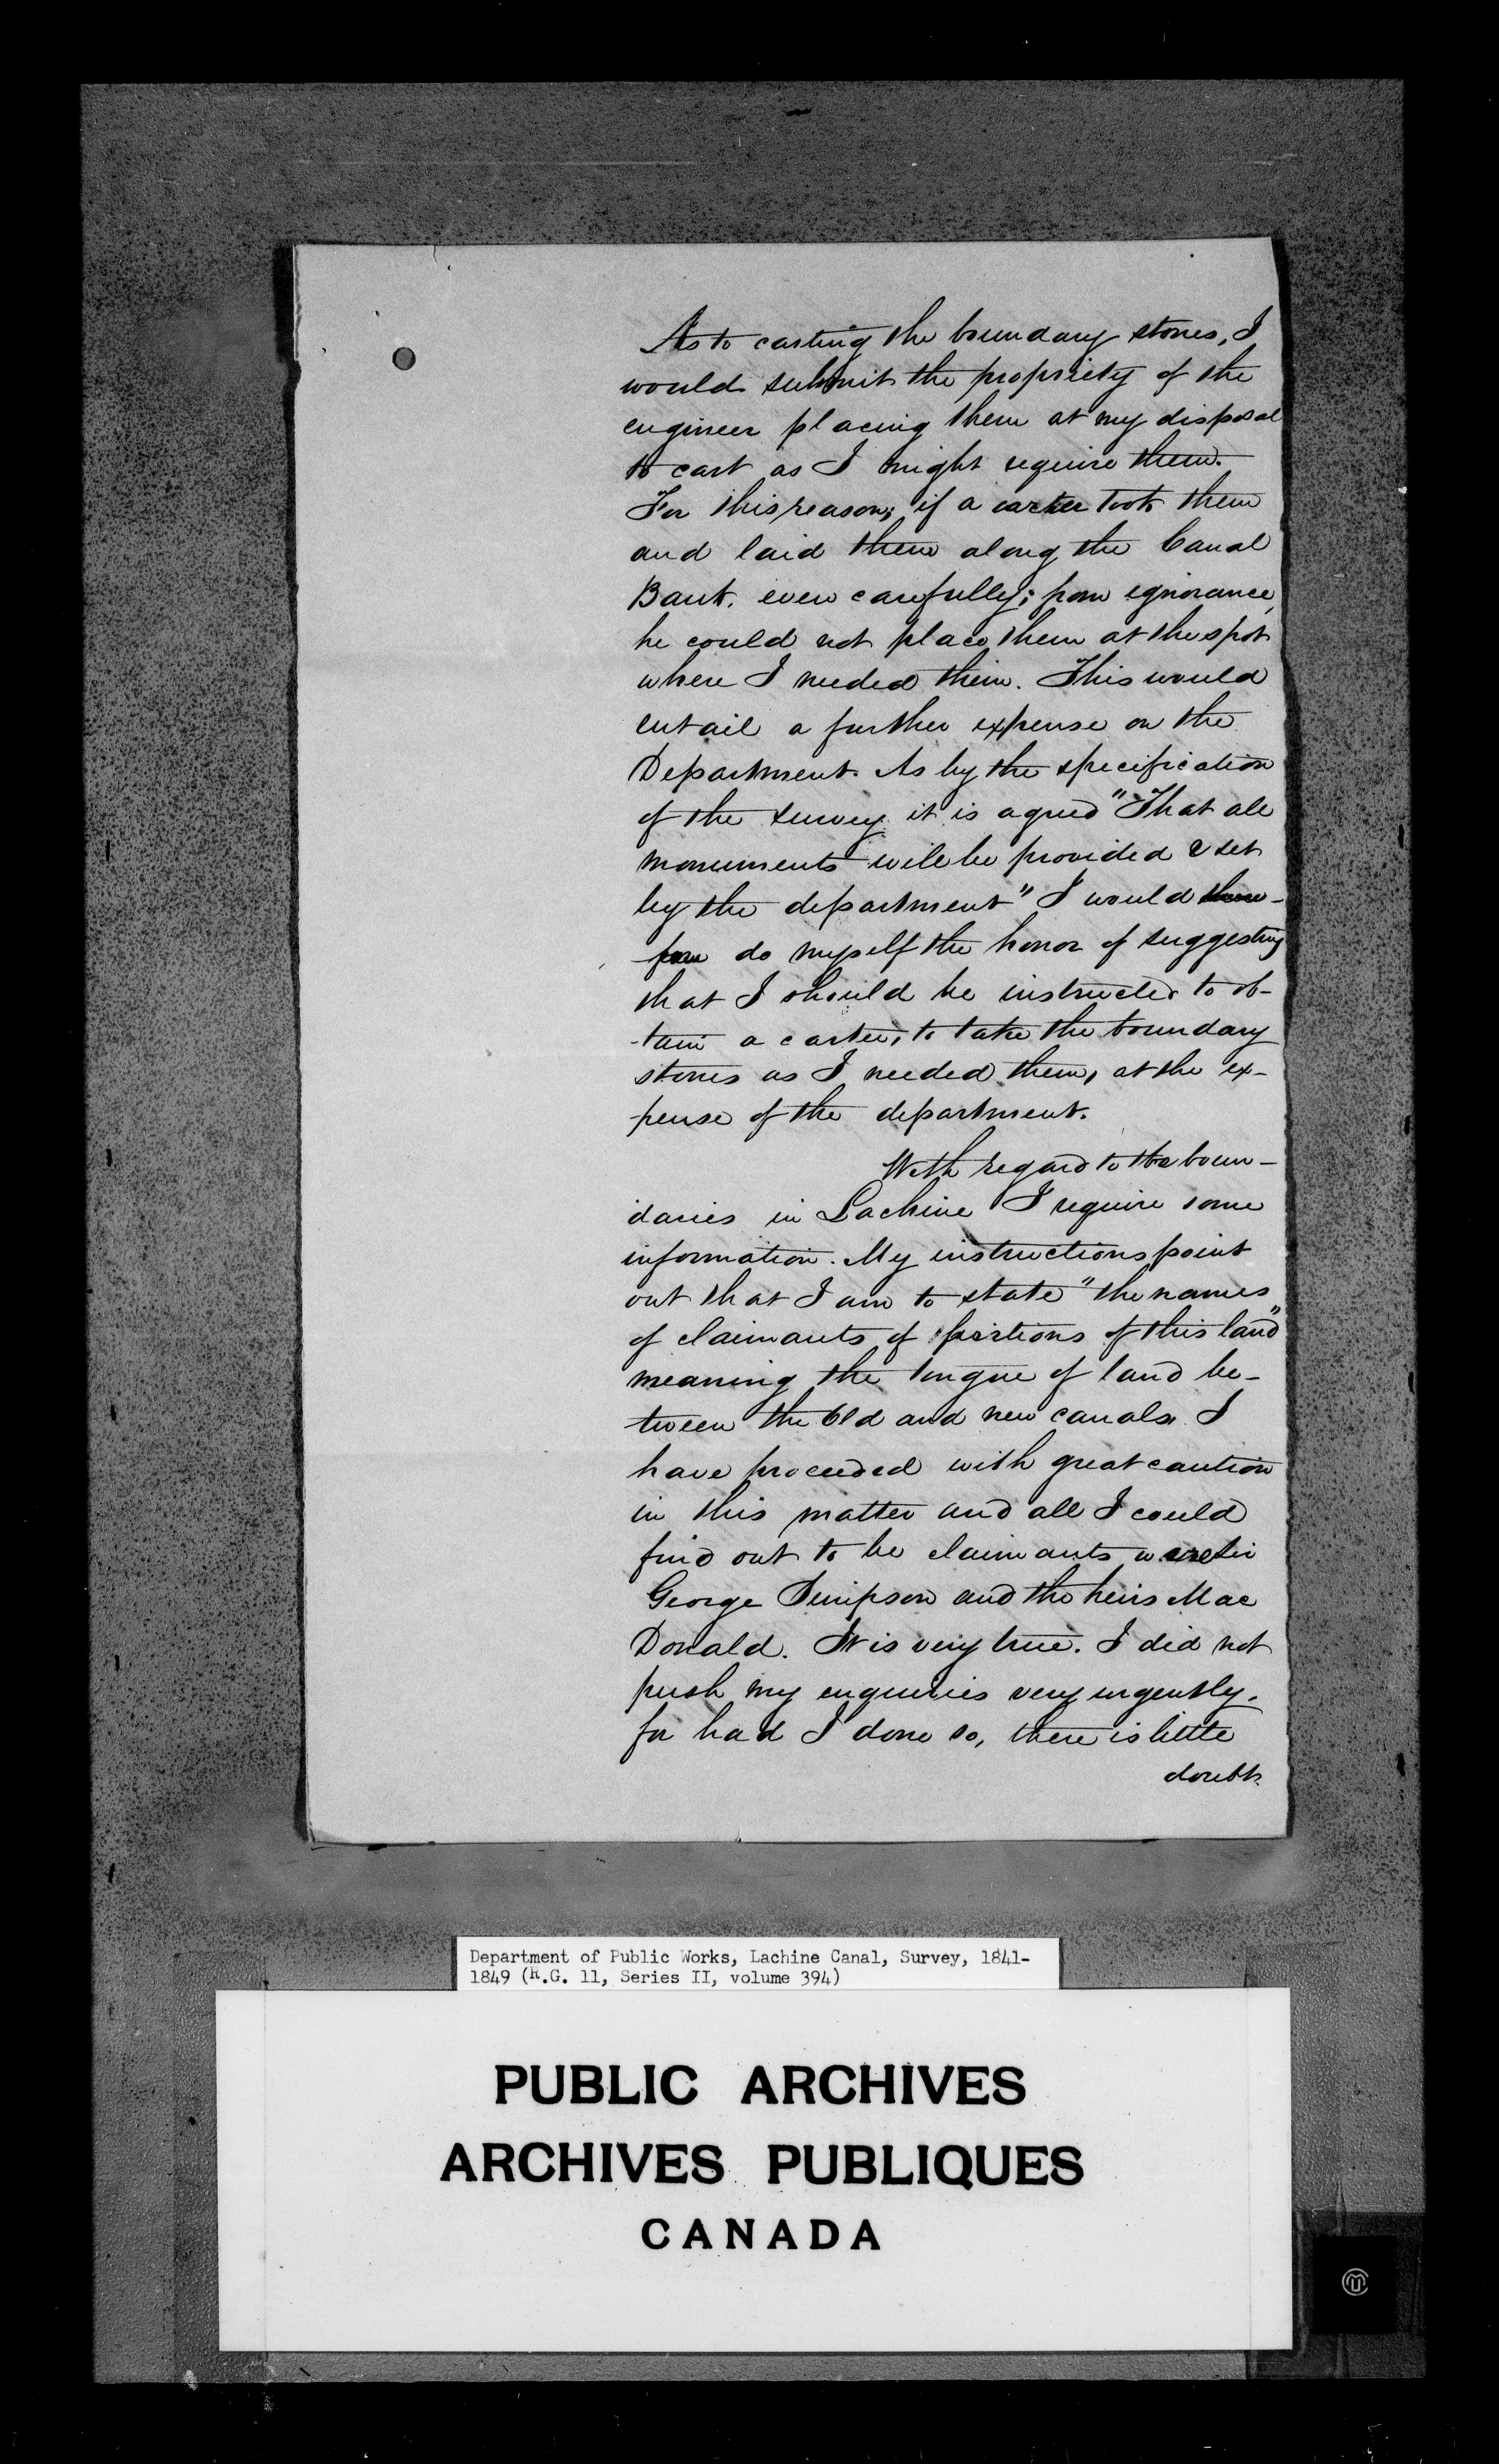 As to carting the boundary stones, I
would submit the propriety of the
engineer placing them at my disposal
to cart as I might require them.
For this reason; if a carter took them
and laid them along the Canal
Bank, even carefully; from ignorance,
he could not place them at the spot
where I needed them. This would
entail a further expense on the
Department. As by the specification
of the survey it is agreed "That all
monuments will be provided & set
by the department" I would there-
fore do myself the honor of suggesting
that I should be instructed to ob-
-tain a carter, to take the boundary
stones as I needed them, at the ex-
pense of the department.
With regard to the boun-
daries in Lachine I require some
information. My instructions point
out that I am to state "the names
of claimants of portions of this land"
meaning the tongue of land be-
tween the old and new canals. I
have proceeded with great caution
in this matter and all I could
find out to be claimants were Sir
George Simpson and the heirs Mac
Donald. It is very true. I did not
push my enquiries very urgently.
for had I done so, there is little
doubt
Department of Public Works, Lachine Canal, Survey, 1841-
1849 (R.G. 11, Series II, volume 394)
PUBLIC ARCHIVES
ARCHIVES PUBLIQUES
CANADA